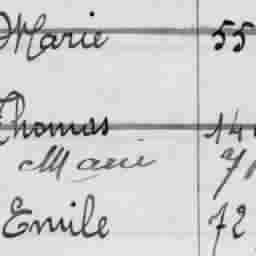 Marie 55
Thomas 14
Marie 7
Emile 72